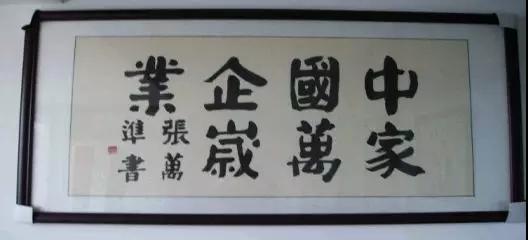 中國企業
家萬歲
張萬
進書